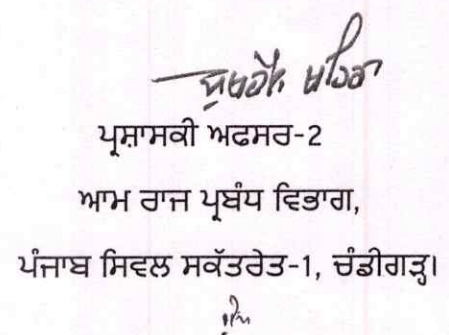 ਪ੍ਰਸ਼ਾਸਕੀ ਅਫਸਰ-2
ਆਮ ਰਾਜ ਪ੍ਰਬੰਧ ਵਿਭਾਗ,
ਪੰਜਾਬ ਸਿਵਲ ਸਕੱਤਰੇਤ-1, ਚੰਡੀਗੜ੍ਹ।